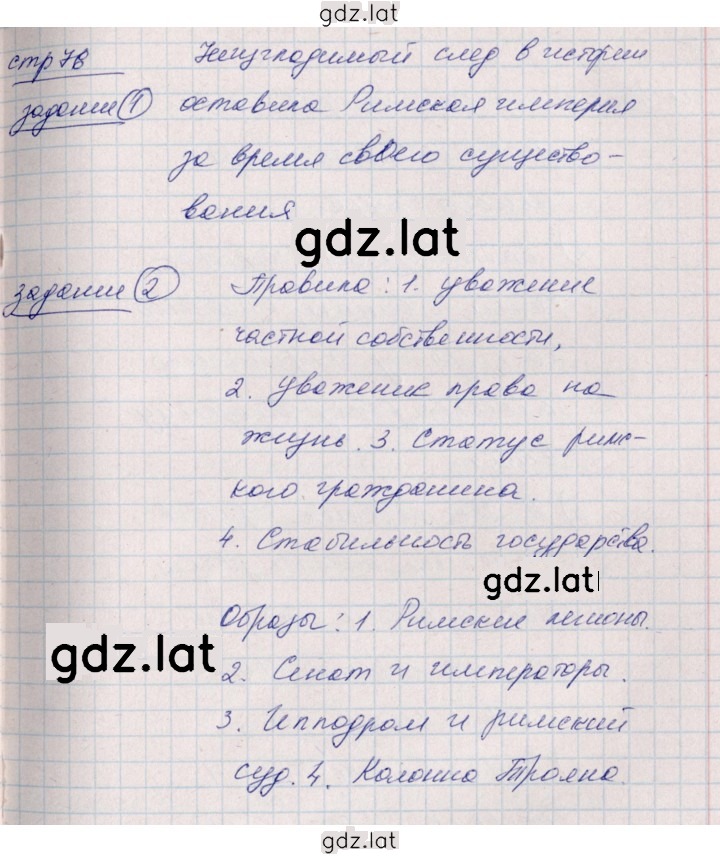 gdz.lat
стр 78 Неизгладимый след в истории
задание 1 оставила Римская империя
за время своего существо-
вания
gdz.lat
задание 2 Правила: 1. уважение
частной собственности,
2. уважение права на
жизнь. 3. Статус римс-
кого гражданина.
4. Стабильность государства.
gdz.lat
Образы: 1. Римские легионы.
gdz.lat
2. Сенат и императоры.
3. Ипподром и римский
суд. 4. Колонна Траяна.
gdz.lat